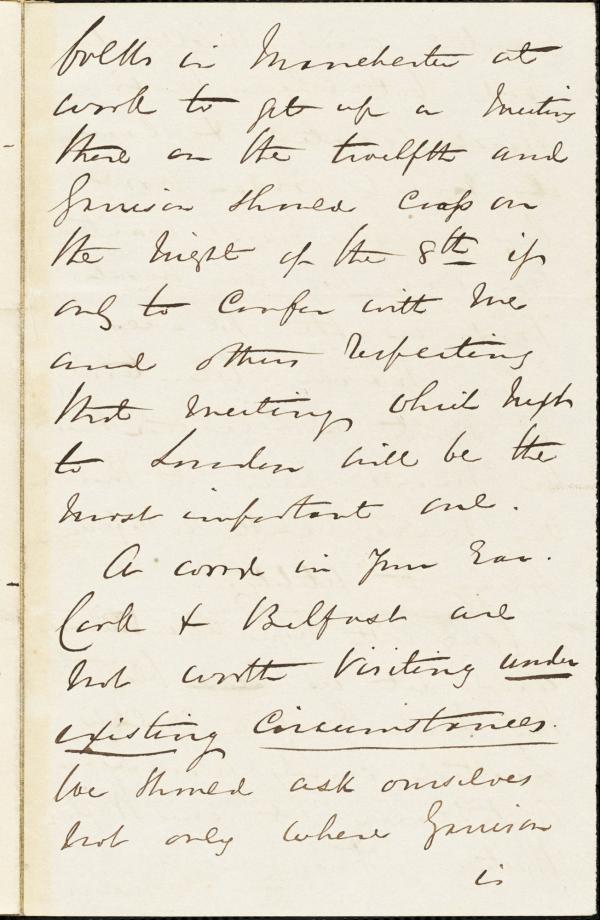 folks in Manchester at
work to get up a meeting
there on the twelfth and
Garrison should cross on
the night of the 8th if
only to confer with me
and others respecting
that meeting which next
to London will be the
most important one.
A word in your Ear.
Cork & Belfast are
not worth visiting under
existing circumstances.
We should ask ourselves
not only where Garrison
is